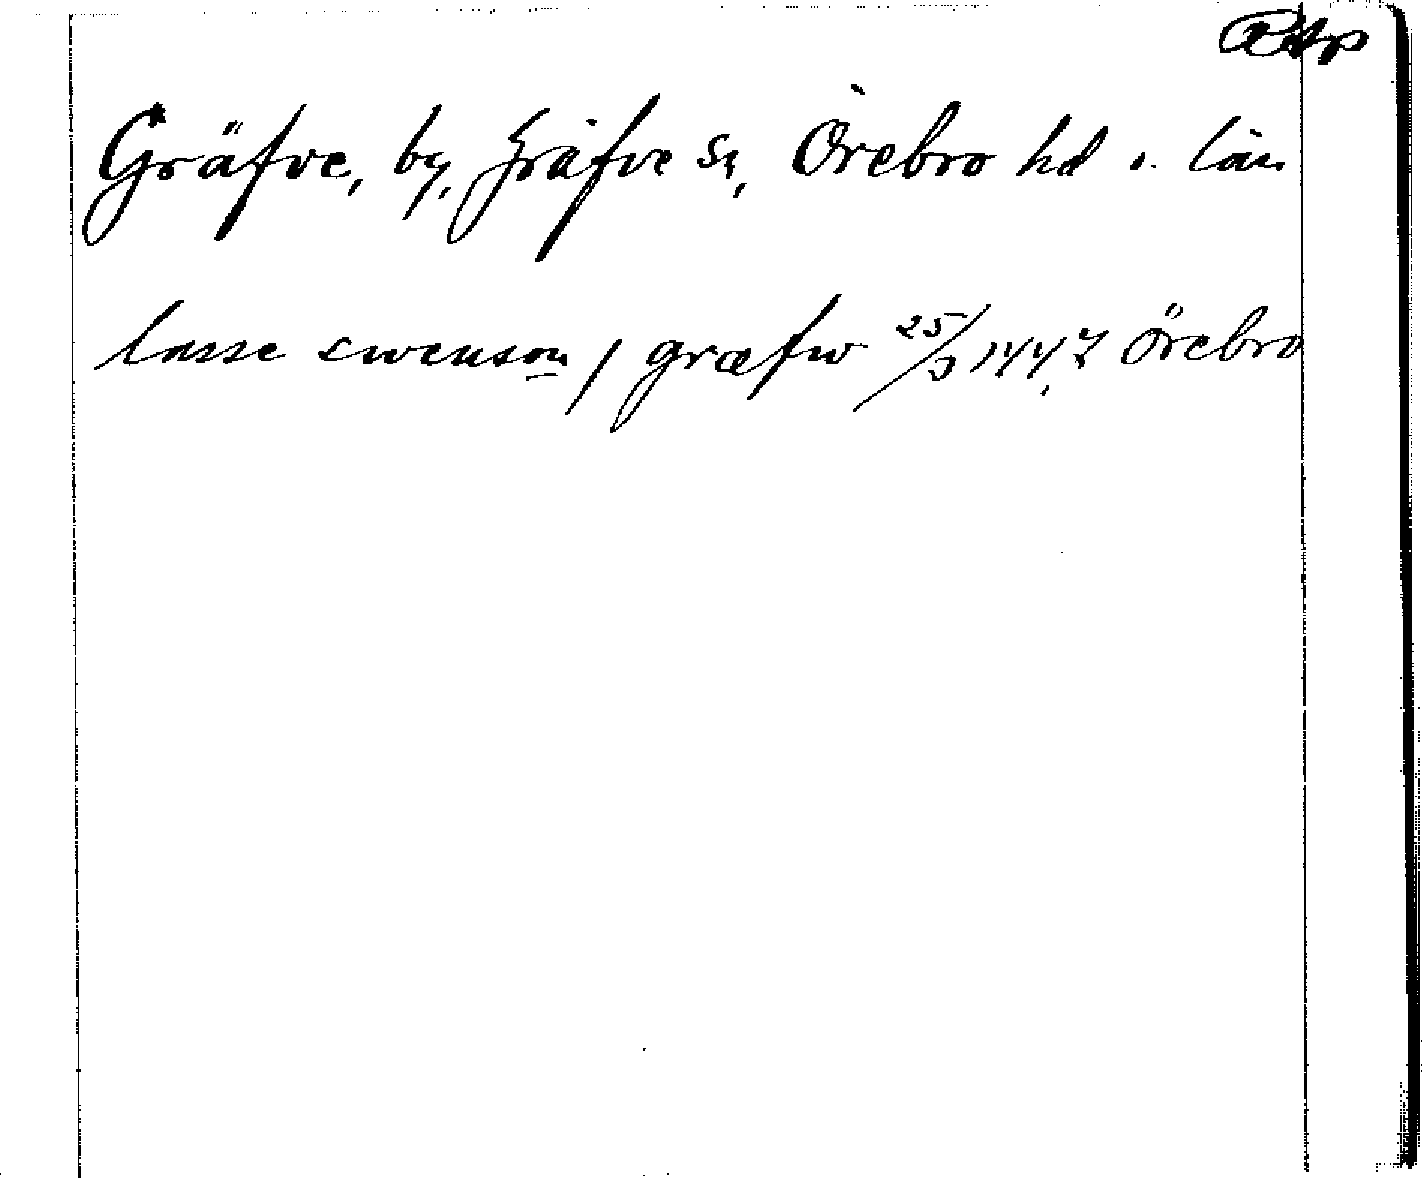 Gräfve, by, Gräfve sn, Örebro hd o. län
lasse swenson / græfw 25/5 1447 Örebro